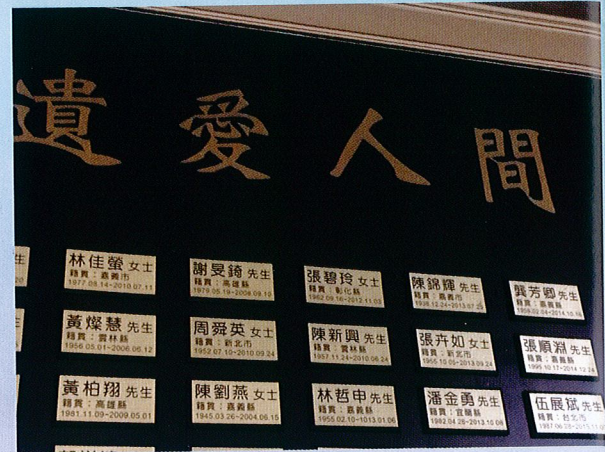 遺愛人間
生
林佳螢 女士
籍貫：嘉義市
1977.08.14~2010.07.11
謝旻錡 先生
籍貫：高雄縣
1979.05.19~2008.09.10
張碧玲 女士
籍貫：彰化縣
1962.09.16~2012.11.03
陳錦輝 先生
籍貫：嘉義市
龔芳卿 先生
籍貫：嘉義縣
生
黃燦慧 先生
籍貫：雲林縣
1956.05.01~2006.06.12
周舜英 女士
籍貫：新北市
1952.07.10~2010.09.24
陳新興 先生
籍貫：雲林縣
1957.11.24~2010.06.24
張卉如 女士
籍貫：新北市
1955.10.05~2013.09.24
張順淵 先生
1995.10.17~2014.12.24
黃柏翔 先生
籍貫：高雄縣
1981.11.09~2009.05.01
陳劉燕 女士
籍貫：嘉義縣
1945.03.26~2004.06.15
林哲申 先生
籍貫：嘉義縣
1955.02.10~1013.01.06
潘金勇 先生
籍貫：宜蘭縣
1982.04.26~2013.10.08
伍展斌 先生
籍貫：台北市